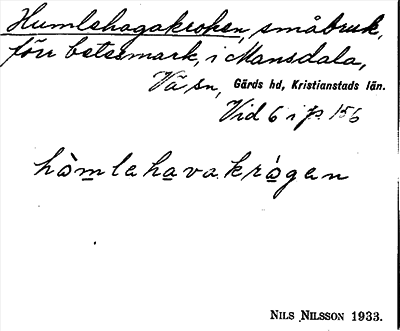 Humlehagakroken, småbruk,
förr betesmark, i Mansdala,
Vä sn, Gärds hd, Kristianstads län.
Vid 6 i p. 156
hòmlehava.krógen
NILS NILSSON 1933.